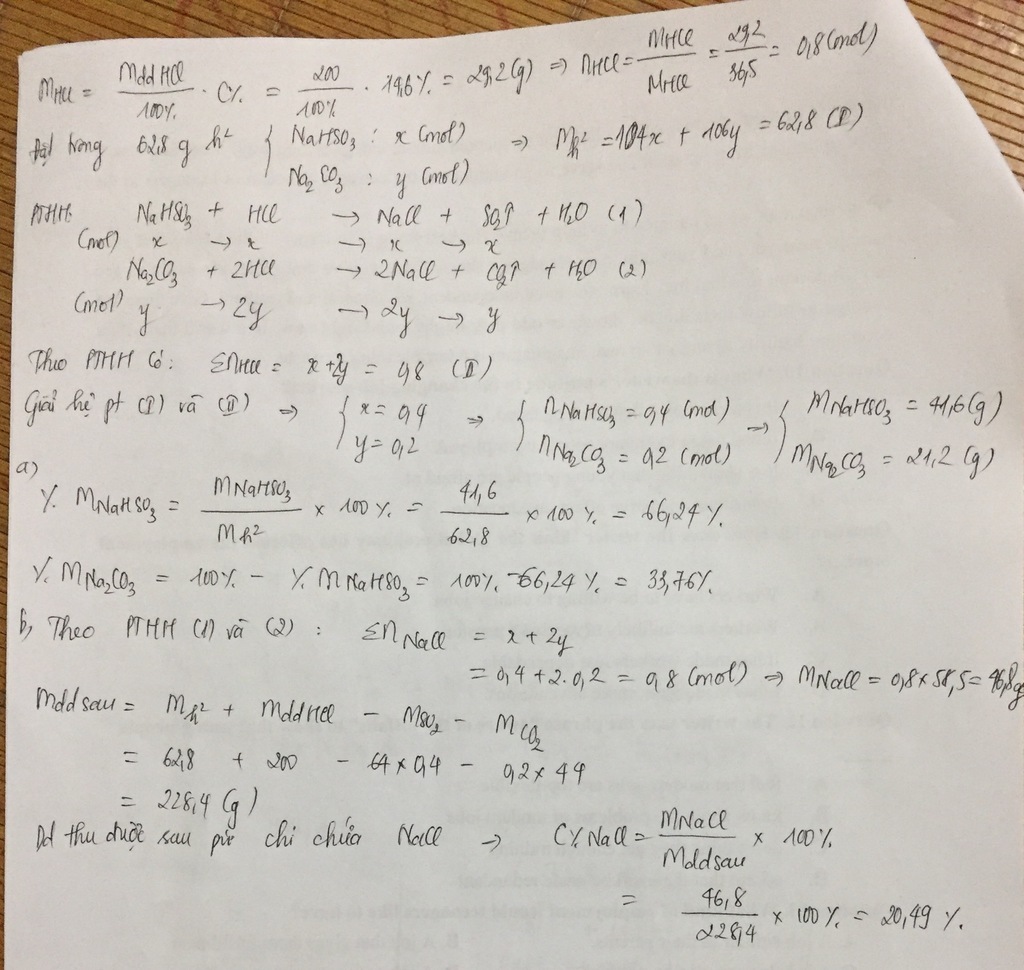 mHCl = mddHCl/100% . C% = 200/100% . 14,6% = 29,2(g) => nHCl = mHCl/MHCl = 29,2/36,5 = 0,8 (mol)
Đặt trong 62,8 g h² { NaHSO₃ : x (mol) => mh² = 104x + 106y = 62,8 (I)
Na₂CO₃ : y (mol)
PTHH: NaHSO₃ + HCl → NaCl + SO₂↑ + H₂O (1)
(mol) x → x → x → x
Na₂CO₃ + 2HCl → 2NaCl + CO₂↑ + H₂O (2)
(mol) y → 2y → 2y → y
Theo PTHH có: ΣnHCl = x+2y = 0,8 (II)
Giải hệ pt (I) và (II) => { x = 0,4 => { nNaHSO₃ = 0,4 (mol) => { mNaHSO₃ = 41,6 (g)
y = 0,2 nNa₂CO₃ = 0,2 (mol) mNa₂CO₃ = 21,2 (g)
a)
% mNaHSO₃ = mNaHSO₃/mh² × 100% = 41,6/62,8 × 100% = 66,24%.
% mNa₂CO₃ = 100% - % mNaHSO₃ = 100% - 66,24% = 33,76%.
b, Theo PTHH (1) và (2) : ΣnNaCl = x + 2y
= 0,4 + 2.0,2 = 0,8 (mol) => mNaCl = 0,8×58,5 = 46,8g
mddsau = mh² + mddHCl - mSO₂ - mCO₂
= 62,8 + 200 - 64×0,4 - 0,2×44
= 228,4 (g)
Dd thu được sau pứ chỉ chứa NaCl → C% NaCl = mNaCl/mddsau × 100%
= 46,8/228,4 × 100% = 20,49 %.